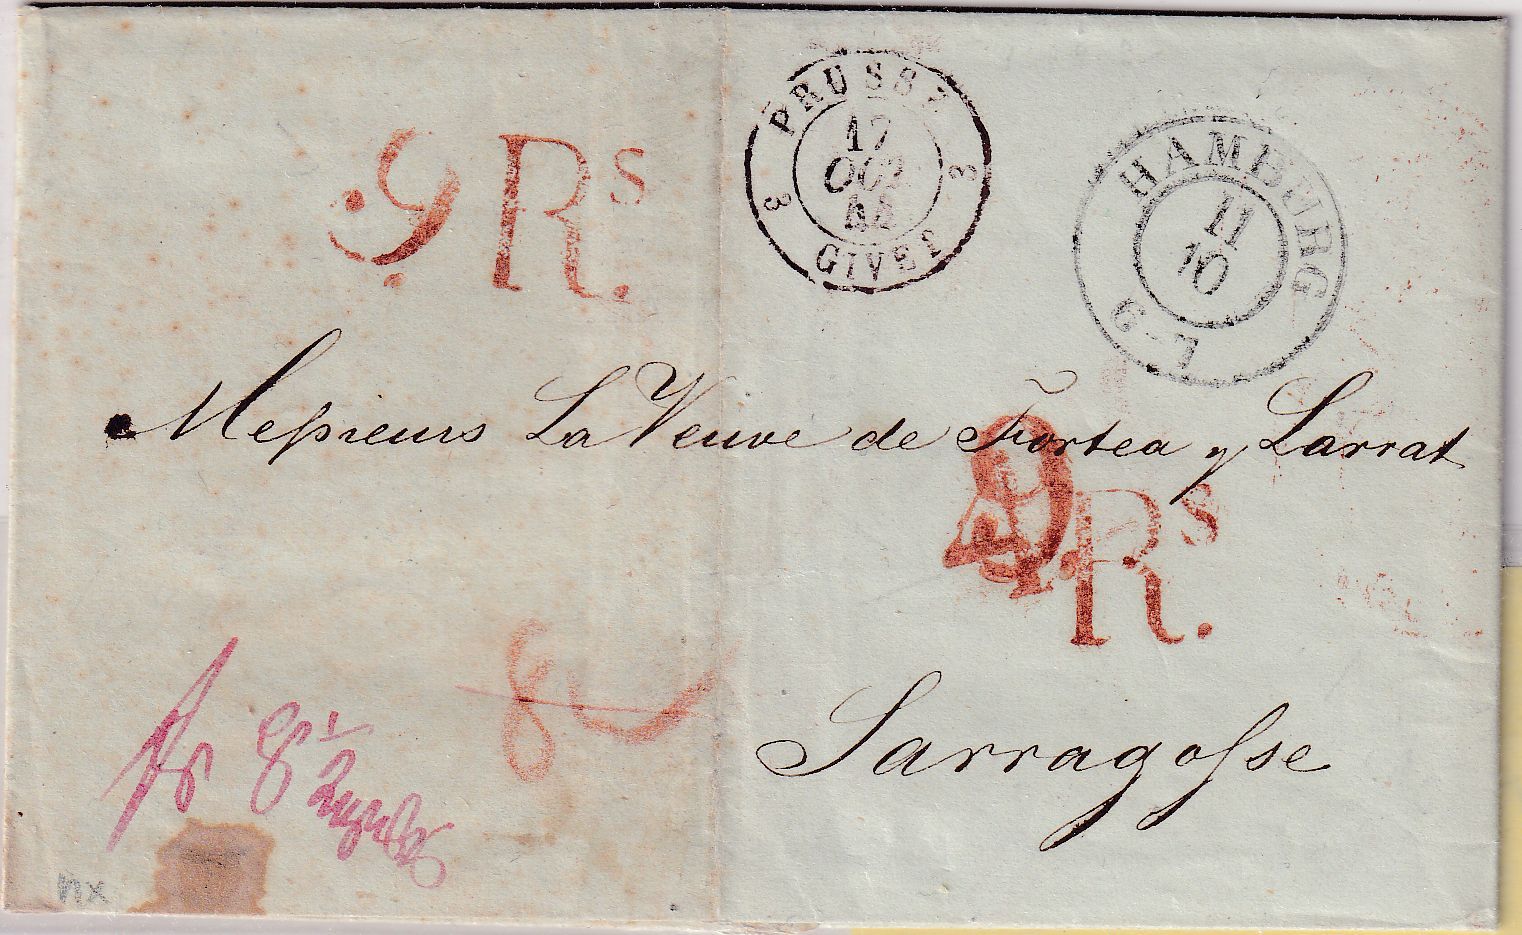 9 Rs.
PRUSSE
3 3
17
OCT
44
GIVET
HAMBURG
11
10
6-7
Messieurs La Veuve de Fortea y Larrat
9 Rs.
Sarragosse
fr
8
nx